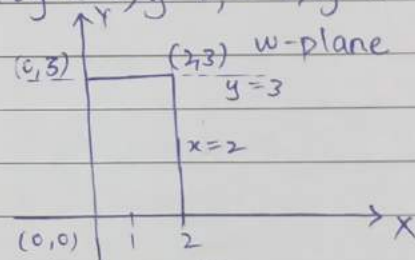 Y
(0,3) (2,3) w-plane
y=3
x=2
(0,0) 1 2 X